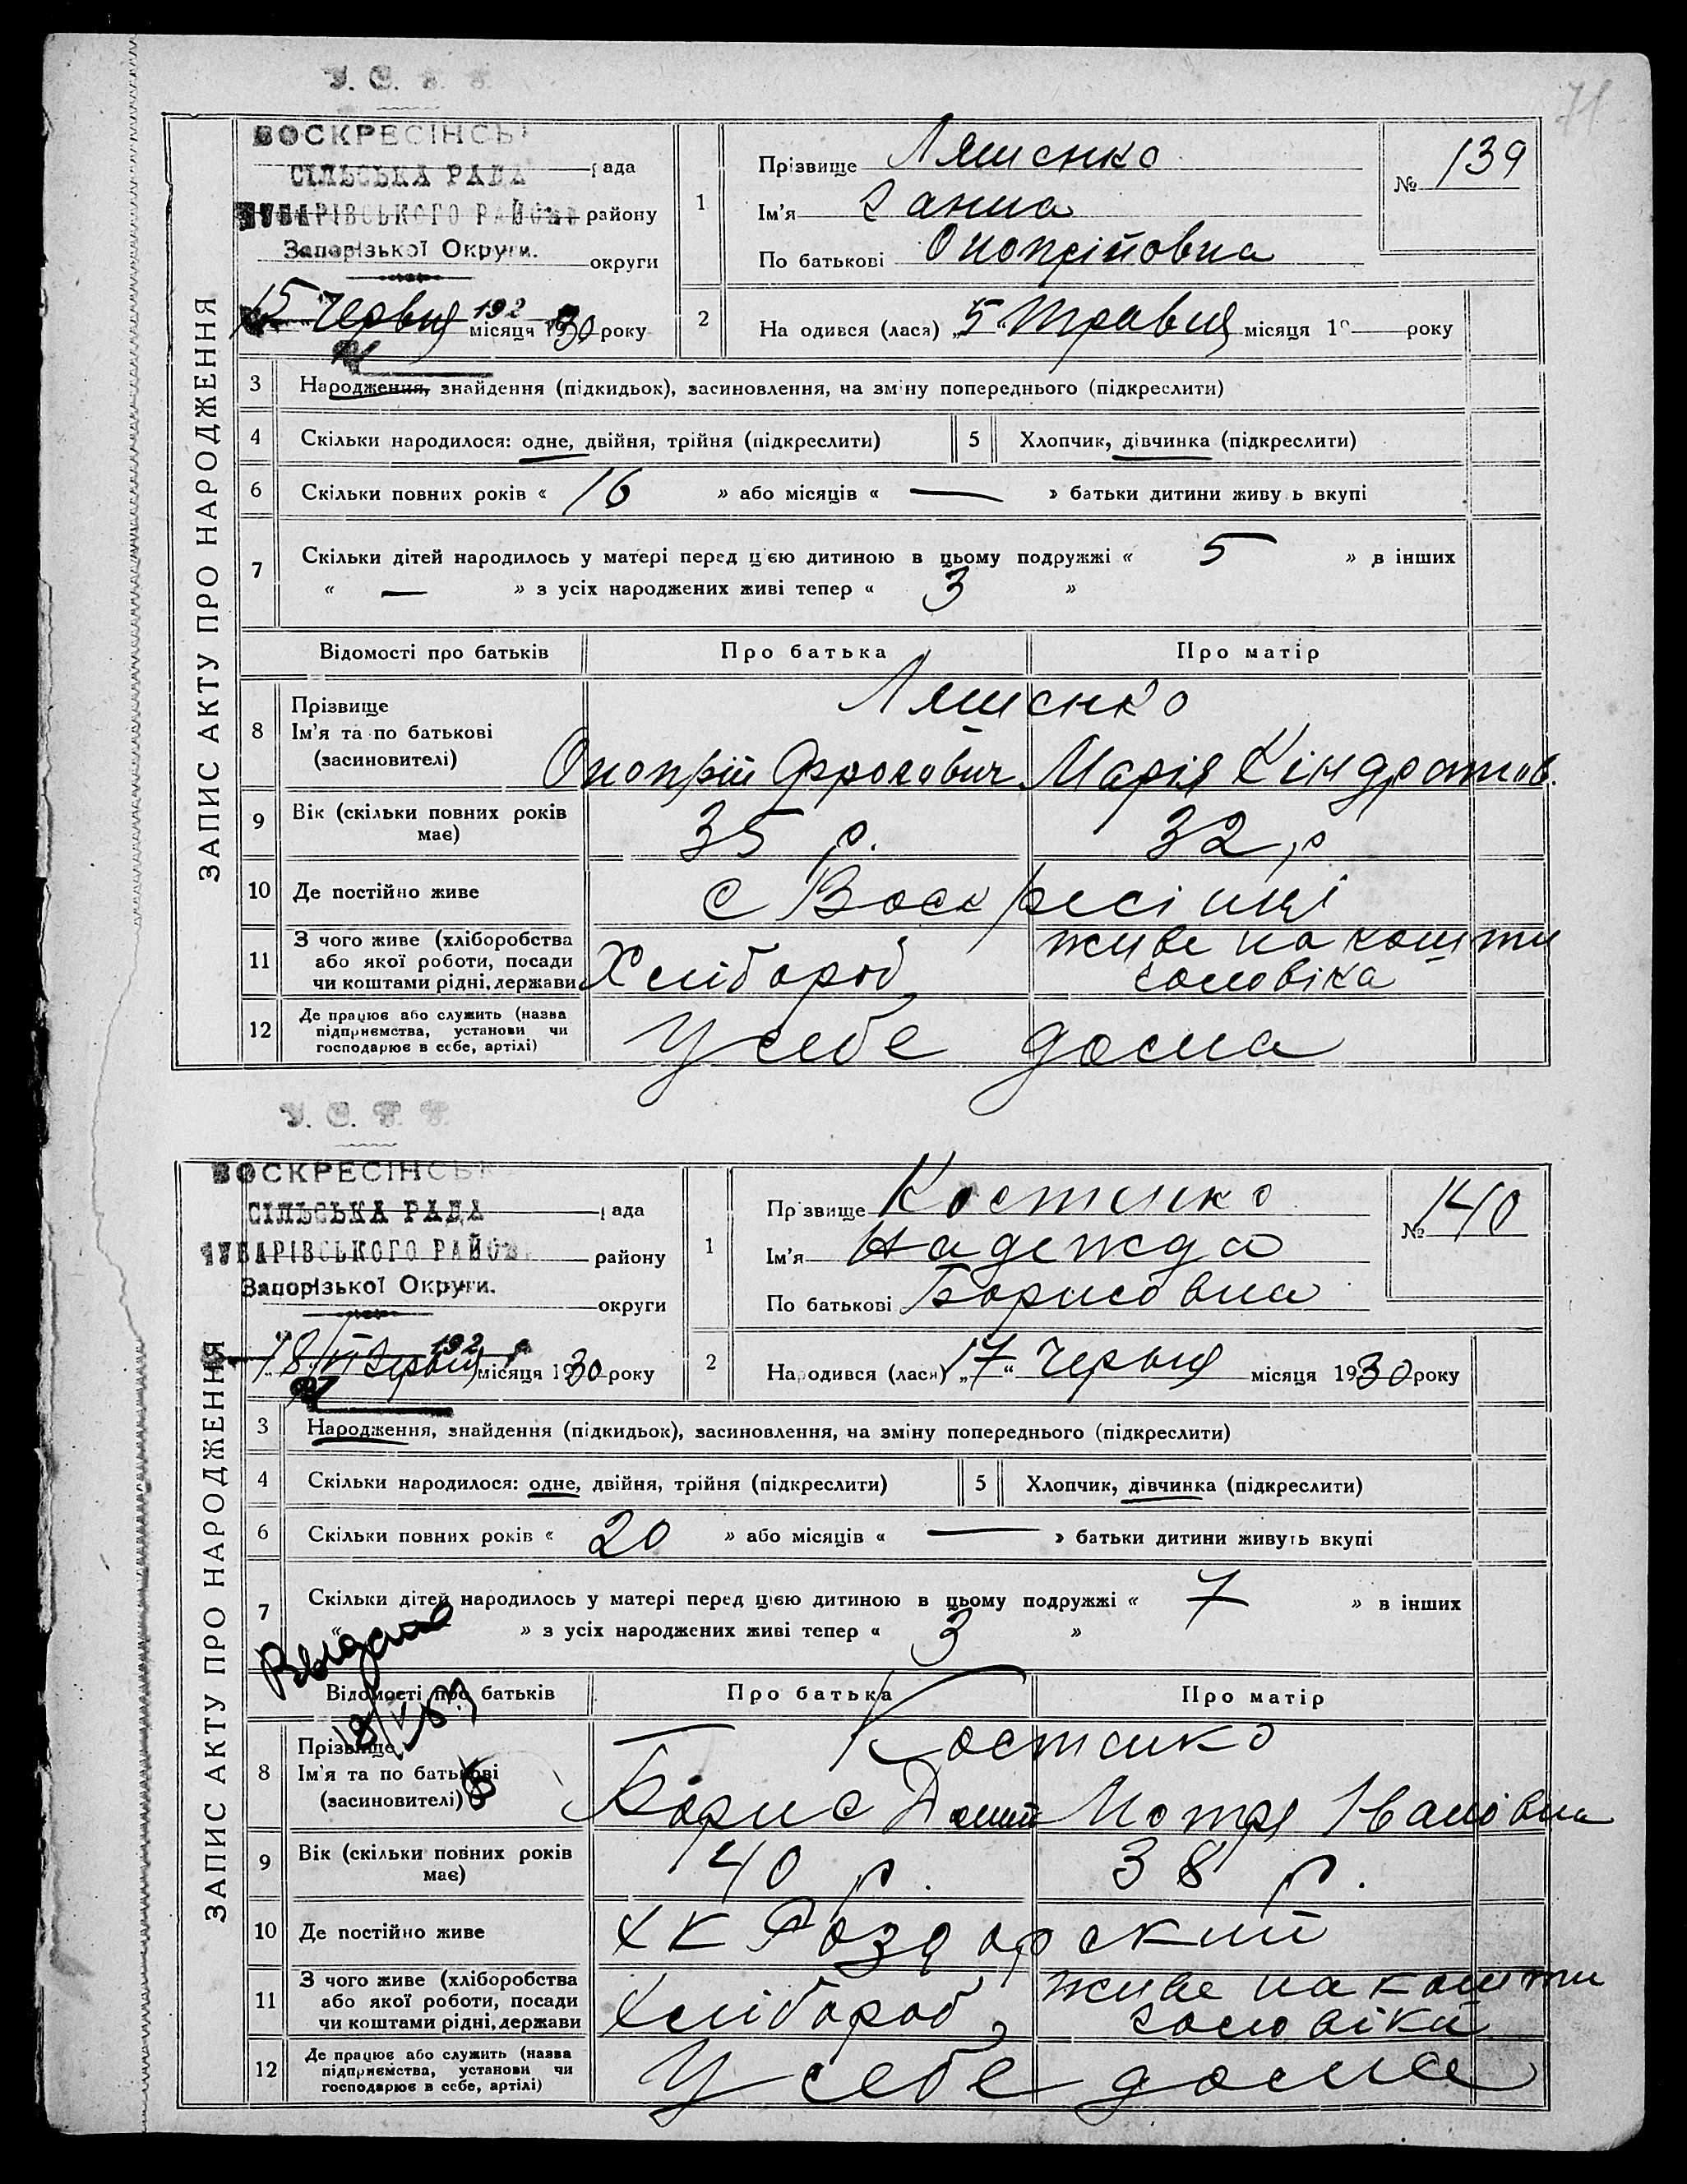 71
У. С.
ВОСКРЕСІНСЬ
СІЛЬСЬКА РАДА рада
ЧУБАРІВСЬКОГО РАЙОНУ району
Запорізької Округи. округи
15 Червня 192 місяця 1930 року
ЗАПИС АКТУ ПРО НАРОДЖЕННЯ
1
Прізвище Ляшенко
Ім'я Ганна
По батькові Онопрійовна
№ 139
2
Народився (лася) „5“ Травня місяця 19 року
3 Народження, знайдення (підкидьок), засиновлення, на зміну попереднього (підкреслити)
4 Скільки народилося: одне, двійня, трійня (підкреслити) 5 Хлопчик, дівчинка (підкреслити)
6 Скільки повних років « 16 » або місяців « — » батьки дитини живуть вкупі
7 Скільки дітей народилось у матері перед цією дитиною в цьому подружжі « 5 » в інших
« — » з усіх народжених живі тепер « 3 »
Відомості про батьків Про батька Про матір
8 Прізвище Ім'я та по батькові (засновителі) Ляшенко
Онопрій Фролович Марія Кіндратив.
9 Вік (скільки повних років має) 35 р. 32 р
10 Де постійно живе с Воскресінці
11 З чого живе (хліборобства або якої роботи, посади чи коштами рідні, держави Хлібороб живе на кошти чоловіка
12 Де працює або служить (назва підприємства, установи чи господарює в себе, артілі) У себе дома
У. С. Р. Р.
ВОСКРЕСІНСЬК
СІЛЬСЬКА РАДА рада
ЧУБАРІВСЬКОГО РАЙОН району
Запорізької Округи. округи
18/VI Червня 192 місяця 1930 року
ЗАПИС АКТУ ПРО НАРОДЖЕННЯ
1
Прізвище Костенко
Ім'я Надежда
По батькові Борисовна
№ 140
2
Народився (лася) „17“ Червня місяця 1930 року
3 Народження, знайдення (підкидьок), засиновлення, на зміну попереднього (підкреслити)
4 Скільки народилося: одне, двійня, трійня (підкреслити) 5 Хлопчик, дівчинка (підкреслити)
6 Скільки повних років « 20 » або місяців « — » батьки дитини живуть вкупі
7 Скільки дітей народилось у матері перед цією дитиною в цьому подружжі « 7 » в інших
« » з усіх народжених живі тепер « 3 »
Выдано
18/V
Відомості про батьків Про батька Про матір
8 Прізвище Ім'я та по батькові (засиновителі) Костенко
Борис Мотря Іванівна
9 Вік (скільки повних років має) 40 р. 38 р.
10 Де постійно живе Роздорский
11 З чого живе (хліборобства або якої роботи, посади чи коштами рідні, держави Хлібороб живе на кошти чоловіка
12 Де працює або служить (назва підприємства, установи чи господарює в себе, артілі) У себе дома